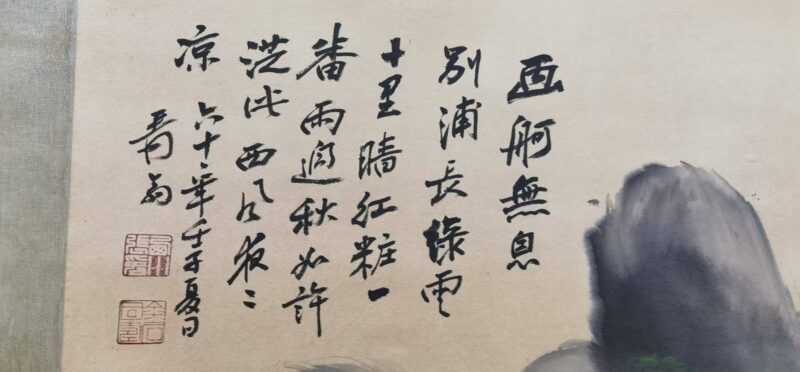 画舸無息
別浦長綠雲
十里晴红粧一
番雨過秋如許
洗 西風夜〻
凉 六十一年壬子夏日
翁